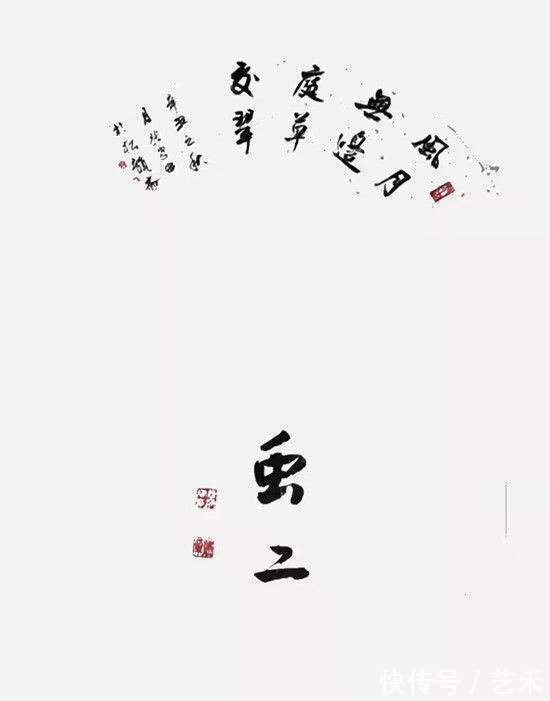 風月
無邊
庭草
交翠
辛丑之秋
月
於松
虫二
快传号/艺禾